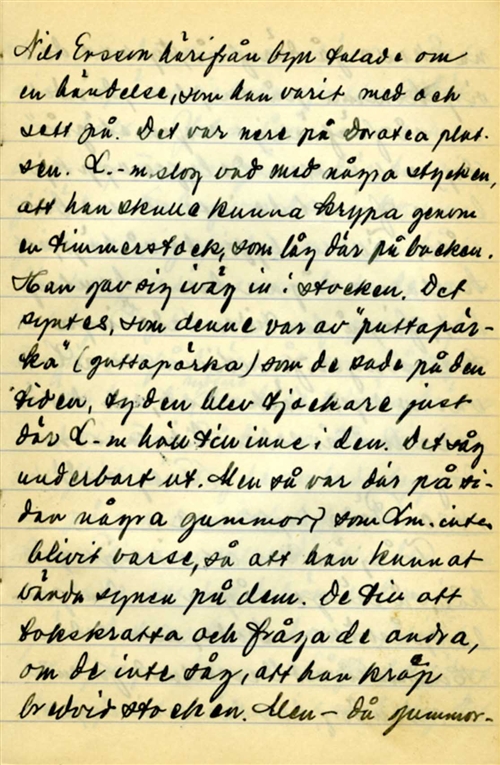 Nils Ersson härifrån byn talade om
en händelse, som han varit med och
sett på. Det var nere på Dorotea plat-
sen. L.-m. slog vad med några stycken,
att han skulle kunna krypa genom
en timmerstock, som låg där på backen.
Han gav sig iväg in i stocken. Det
syntes, som denne var av "puttapär-
ka" (guttapärka) som de sade på den
tiden, ty den blev tjockare just
där L-m höll till inne i den. Det såg
underbart ut. Men så var där på si-
dan några gummor, som Lm. inte
blivit varse, så att han kunnat
vända synen på dem. De till att
tokskratta och fråga de andra,
om de inte såg, att han kröp
bredvid stocken. Men - då gummor-